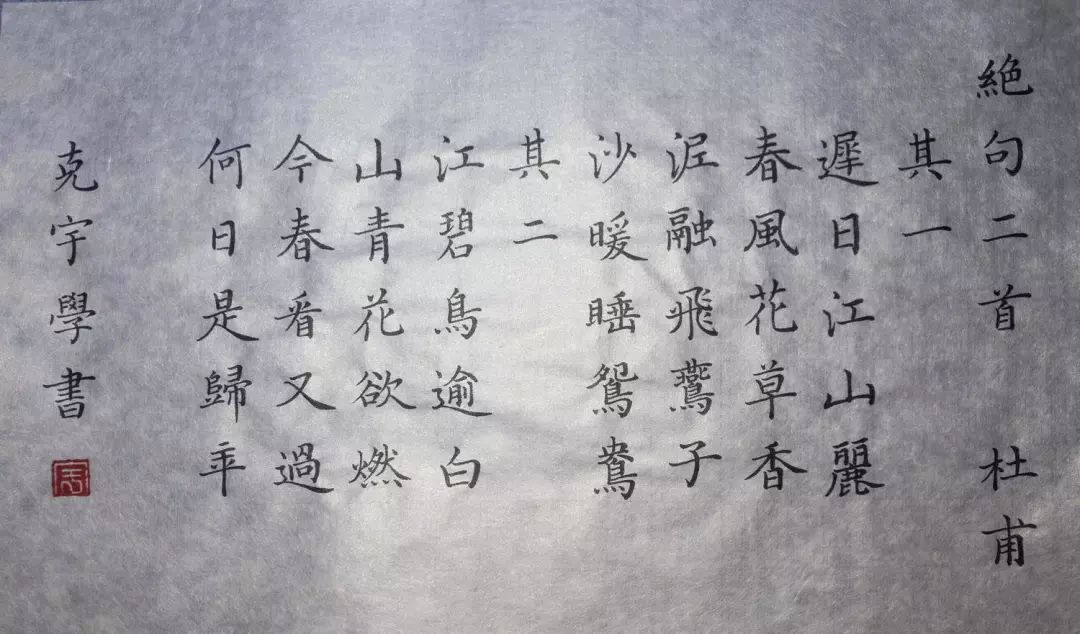 絶句二首 杜甫
其一
遲日江山麗
春風花草香
泥融飛鷰子
沙暖睡鴛鴦
其二
江碧鳥逾白
山青花欲燃
今春看又過
何日是歸年
克宇學書